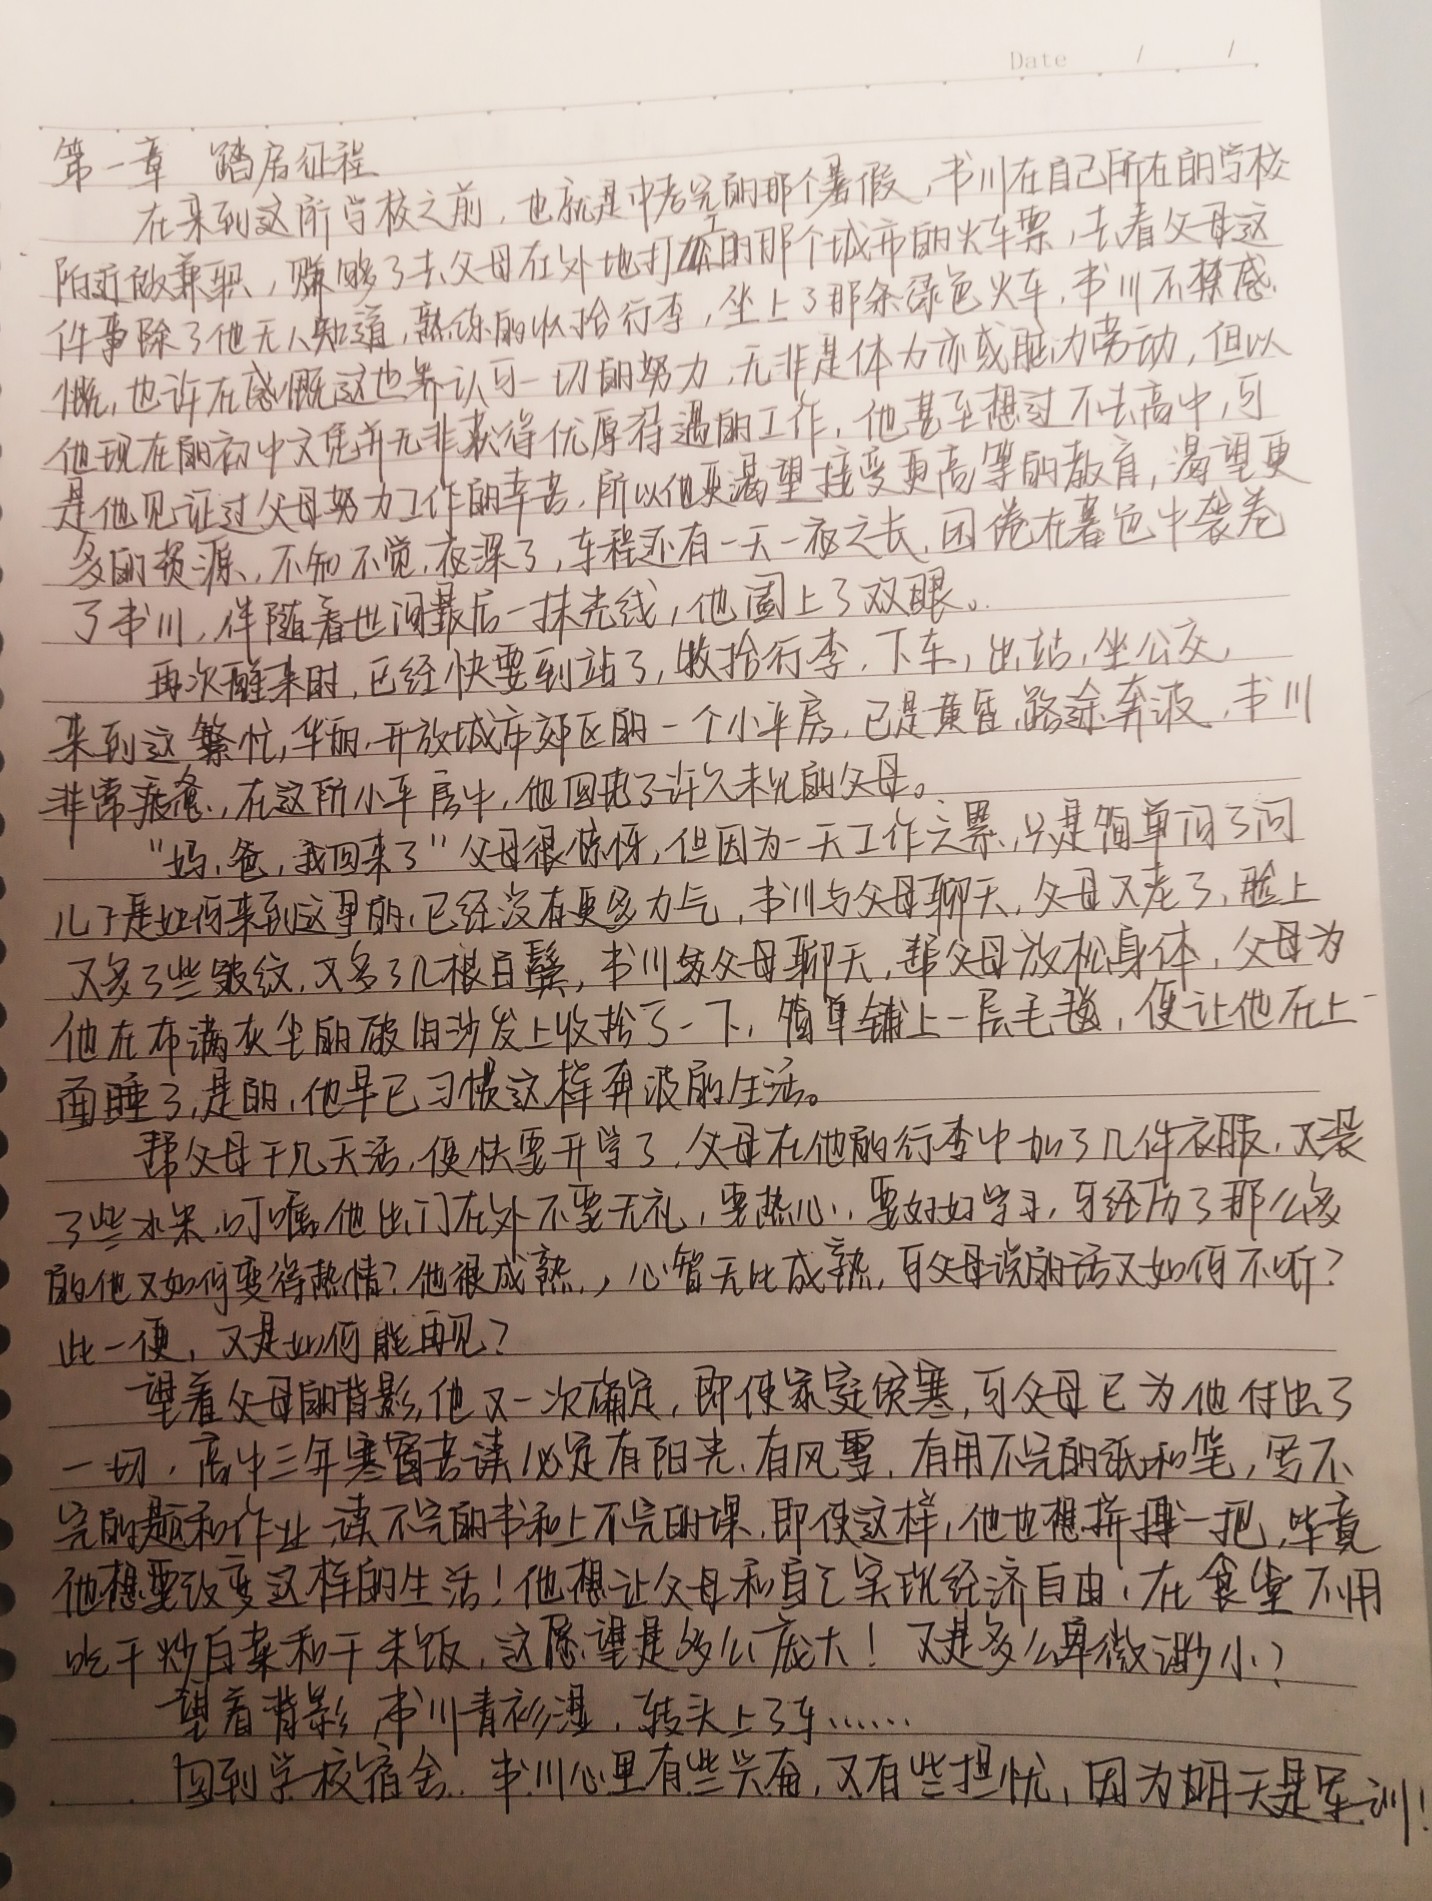 Date / /
第一章 踏启征程
在来到这所学校之前，也就是中考完的那个暑假，书川在自己所在的学校
附近做兼职，赚够了去父母在外地打工的那个城市的火车票，去看父母这
件事除了他无人知道，熟练的收拾行李，坐上了那条绿色火车，书川不禁感
慨，也许在感慨这世界认可一切的努力，无非是体力亦或脑力劳动，但以
他现在的初中文凭并无非获得优厚待遇的工作，他甚至想过不去高中，可
是他见证过父母努力工作的幸苦，所以他更渴望接受更高等的教育，渴望更
多的资源，不知不觉，夜深了，车程还有一天一夜之长，困倦在暮色中袭卷
了书川，伴随着世间最后一抹光线，他阖上了双眼。
再次醒来时，已经快要到站了，收拾行李，下车，出站，坐公交，
来到这繁忙，华丽，开放城市郊区的一个小平房，已是黄昏，路途奔波，书川
非常疲惫，在这所小平房中，他回抱了许久未见的父母。
“妈，爸，我回来了”父母很惊讶，但因为一天工作之累，只是简单问了问
儿子是如何来到这里的，已经没有更多力气，书川与父母聊天，父母又老了，脸上
又多了些皱纹，又多了几根白鬓，书川与父母聊天，帮父母放松身体，父母为
他在布满灰尘的破旧沙发上收拾了一下，简单铺上一层毛毯，便让他在上
面睡了，是的，他早已习惯这样奔波的生活。
帮父母干几天活，便快要开学了，父母在他的行李中加了几件衣服，又装
了些水果，叮嘱他出门在外不要无礼，要热心，要好好学习，可经历了那么多
的他又如何变得热情？他很成熟，心智无比成熟，可父母说的话又如何不听？
此一便，又是如何能再见？
望着父母的背影，他又一次确定，即使家庭贫寒，可父母已为他付出了
一切，高中三年寒窗苦读必定有阳光，有风雪，有用不完的纸和笔，写不
完的题和作业，读不完的书和上不完的课，即使这样，他也想拼搏一把，毕竟
他想要改变这样的生活！他想让父母和自己实现经济自由，在食堂不用
吃干炒白菜和干米饭，这愿望是多么庞大！又是多么卑微渺小？
望着背影，书川青衫湿，转头上了车……
回到学校宿舍，书川心里有些兴奋，又有些担忧，因为明天是军训！